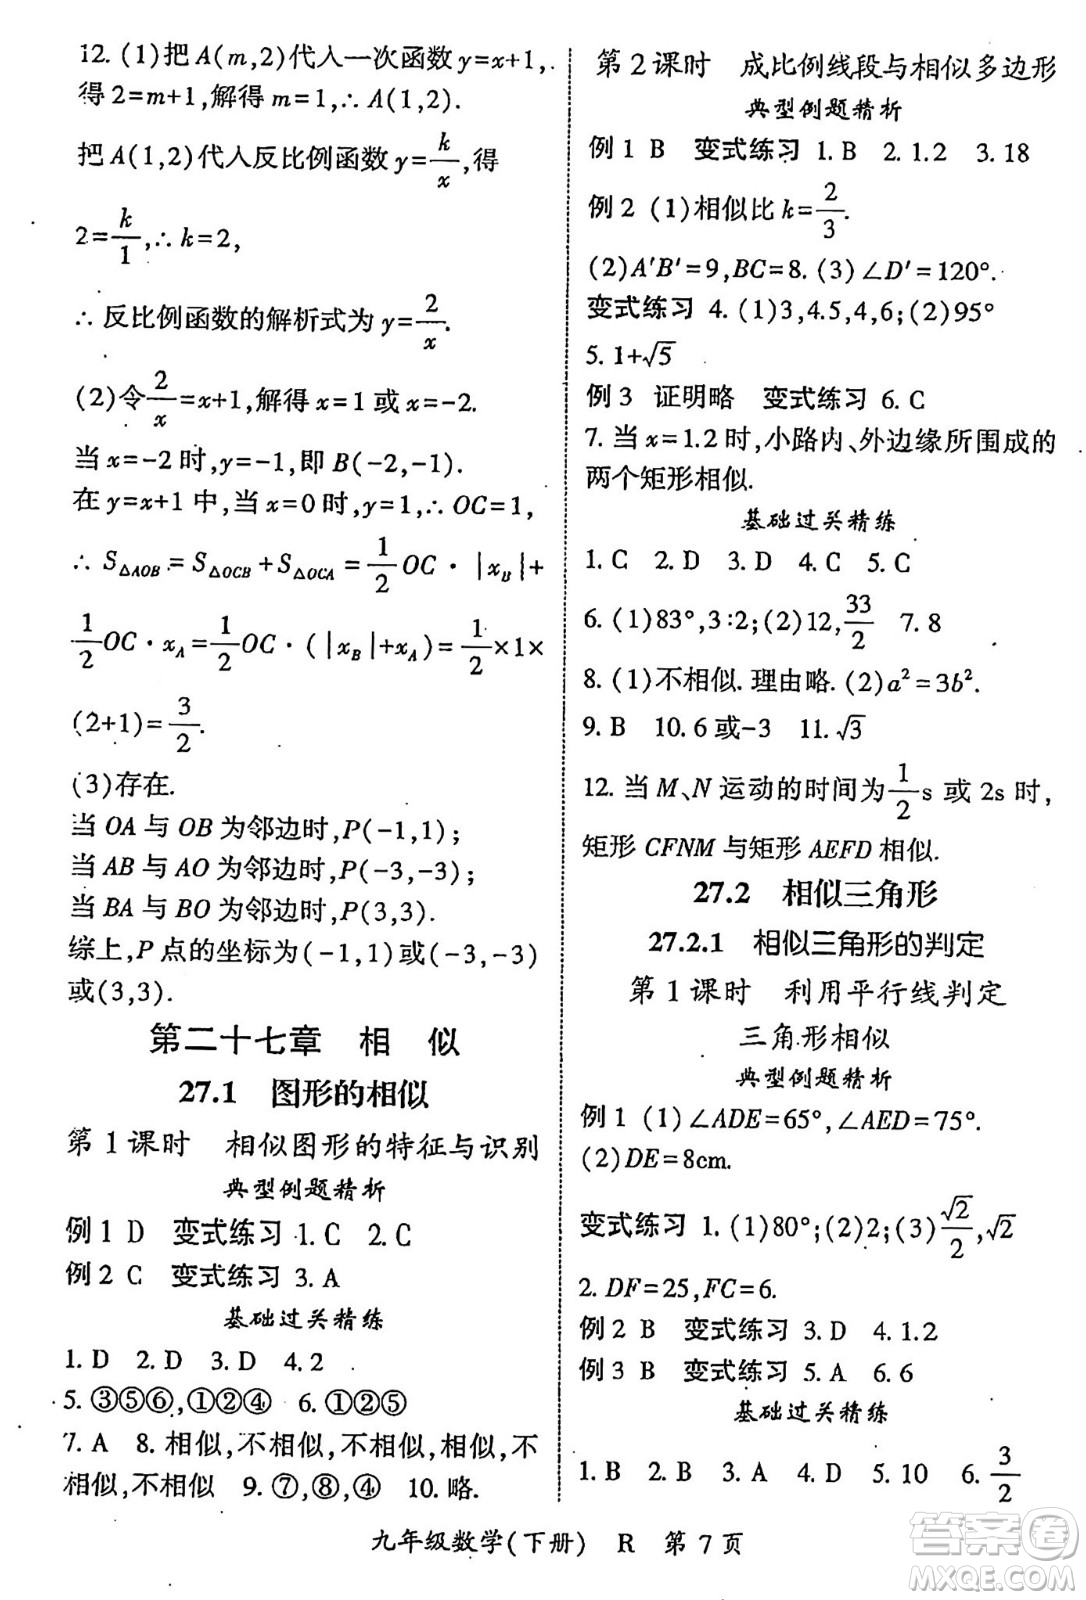 12. (1)把A(m,2)代人一次函数y=x+1,
得2=m+1,解得m=1,∴A(1,2).
把A(1,2)代人反比例函数y=k/x,得
2=k/1,∴k=2,
∴反比例函数的解析式为y=2/x.
(2)令2/x=x+1,解得x=1或x=-2.
当x=-2时,y=-1,即B(-2,-1).
在y=x+1中,当x=0时,y=1,∴OC=1,
∴S△AOB=S△OCB+S△OCA=1/2OC·|x_B|+
1/2OC·x_A=1/2OC·(|x_B|+x_A)=1/2×1×
(2+1)=3/2.
(3)存在.
当OA与OB为邻边时,P(-1,1);
当AB与AO为邻边时,P(-3,-3);
当BA与BO为邻边时,P(3,3).
综上,P点的坐标为(-1,1)或(-3,-3)
或(3,3).
第二十七章 相 似
27.1 图形的相似
第1课时 相似图形的特征与识别
典型例题精析
例1 D 变式练习 1.C 2.C
例2 C 变式练习 3.A
基础过关精练
1.D 2.D 3.D 4.2
5.③⑤⑥,①②④ 6.①②⑤
7.A 8.相似,不相似,不相似,相似,不
相似,不相似 9.⑦,⑧,④ 10.略.
第2课时 成比例线段与相似多边形
典型例题精析
例1 B 变式练习 1.B 2.1.2 3.18
例2 (1)相似比k=2/3.
(2)A′B′=9,BC=8.(3)∠D′=120°.
变式练习 4.(1)3,4.5,4,6;(2)95°
5.1+√5
例3 证明略 变式练习 6.C
7.当x=1.2时,小路内、外边缘所围成的
两个矩形相似.
基础过关精练
1.C 2.D 3.D 4.A 5.C
6.(1)83°,3∶2;(2)12,33/2 7.8
8.(1)不相似.理由略.(2)a²=3b².
9.B 10.6或-3 11.√3
12.当M、N运动的时间为1/2s或2s时,
矩形CFNM与矩形AEFD相似.
27.2 相似三角形
27.2.1 相似三角形的判定
第1课时 利用平行线判定
三角形相似
典型例题精析
例1 (1)∠ADE=65°,∠AED=75°.
(2)DE=8cm.
变式练习 1.(1)80°;(2)2;(3)√2/2,√2
2.DF=25,FC=6.
例2 B 变式练习 3.D 4.1.2
例3 B 变式练习 5.A 6.6
基础过关精练
1.B 2.B 3.A 4.D 5.10 6.3/2
九年级数学(下册) R 第7页
答案圈
MXQE.COM